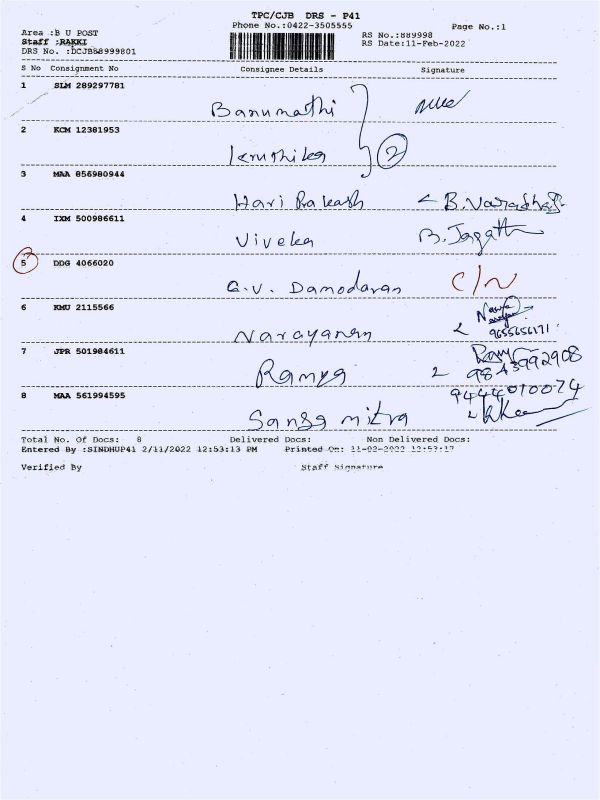 TPC/CJB DRS - P41
Phone No.:0422-3505555
Page No.:1
Area :B U POST
Staff :RAKKI
DRS No. :DCJB88999801
RS No.:889998
RS Date:11-Feb-2022
S No Consignment No Consignee Details Signature
1 SLM 289297781
Banumathi
2 KCM 12381953
Kruthika 2
3 MAA 856980944
Hari Prakash B. Varadharaj
4 IXM 500986611
Viveka B. Jagath
5 DDG 4066020
G.V. Damodaran C/N
6 KMU 2115566
Narayanan 9655656171
7 JPR 501984611
Ramya Ramya
9843992908
8 MAA 561994595
9444010074
Sanga mitra
Total No. Of Docs: 8 Delivered Docs: Non Delivered Docs:
Entered By :SINDHUP41 2/11/2022 12:53:13 PM Printed On: 11-02-2022 12:53:17
Verified By Staff Signature